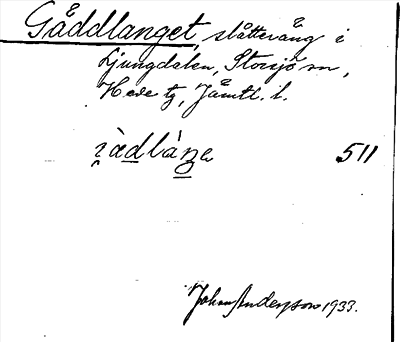 Gåddlanget, slåtteräng i
Ljungdalen, Storsjö sn,
Hede tg, Jämtl. l.
511
Johan Anderson 1933.